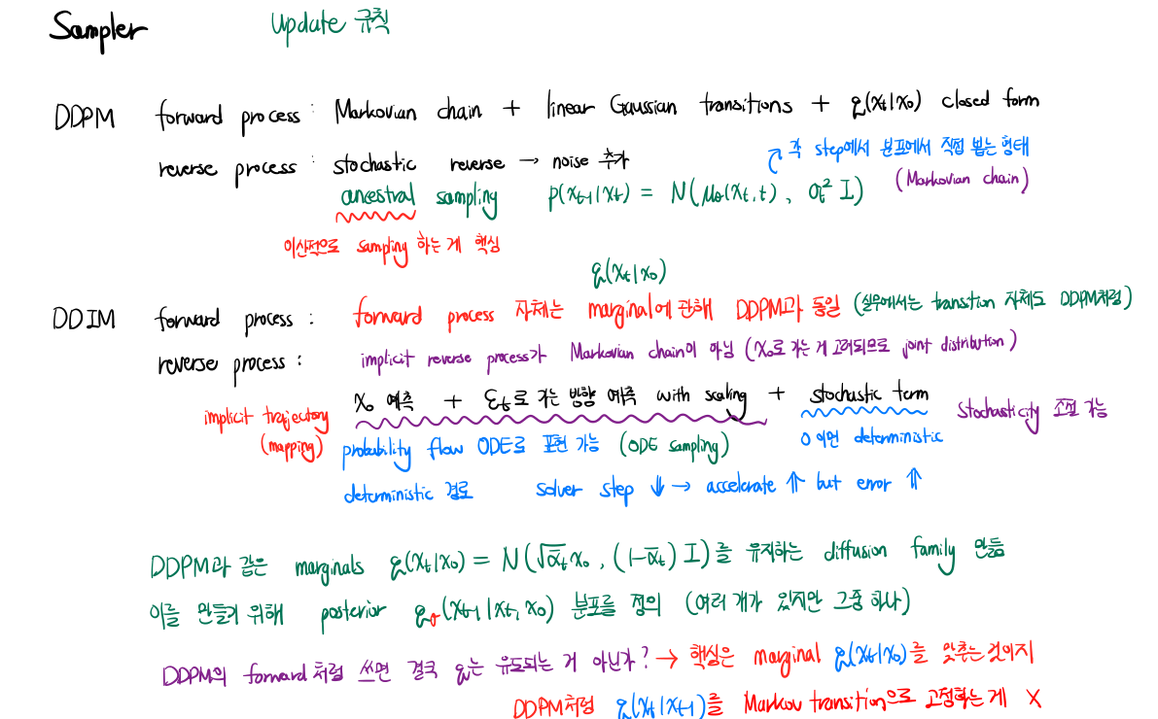 Sampler Update 규칙
DDPM forward process : Markovian chain + linear Gaussian transitions + q(xt|x0) closed form
reverse process : stochastic reverse → noise 추가
각 step에서 분포에서 직접 뽑는 형태
(Markovian chain)
ancestral sampling p(xt-1|xt) = N(μθ(xt,t), σt² I)
이산적으로 sampling 하는 게 핵심
q(xt|x0)
DDIM forward process : forward process 자체는 marginal에 관해 DDPM과 동일 (실무에서는 transition 자체도 DDPM처럼)
reverse process : implicit reverse process가 Markovian chain이 아님 (x0로 가는 게 고려되므로 joint distribution)
x0 예측 + εt로 가는 방향 예측 with scaling + stochastic term
implicit trajectory
(mapping)
stochasticity 조절 가능
0이면 deterministic
probability flow ODE로 표현 가능 (ODE sampling)
deterministic 경로 solver step ⇓ → accelerate ⇑ but error ⇑
DDPM과 같은 marginals q(xt|x0) = N(√ᾱt x0, (1-ᾱt) I)를 유지하는 diffusion family 만듦
이를 만들기 위해 posterior qσ(xt-1|xt, x0) 분포를 정의 (여러 개가 있지만 그중 하나)
DDPM의 forward처럼 쓰면 결국 q는 유도되는 거 아닌가? → 핵심은 marginal q(xt|x0)를 맞추는것이지
DDPM처럼 q(xt|xt-1)를 Markov transition으로 고정하는 게 X